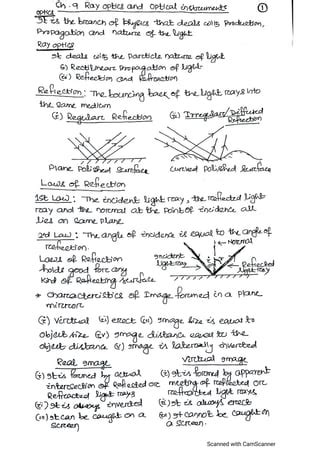 Ch. 9 Ray optics and optical instruments ①
optics
It is the branch of Physics that deals with Production,
Propagation and nature of the light
Ray optics
It deals with the Particle nature of light
(i) Rectilinear Propagation of light
(ii) Reflection and Refraction
Reflection: The bouncing back of the light rays into
the same medium
(i) Regular Reflection (ii) Irregular / Diffused
Reflection
Plane Polished Surface Curved Polished Surface
Laws of Reflection
1st Law: The incident light ray, the reflected light
ray and the normal at the Point of incidence all
lies on same Plane
2nd Law: The angle of incidence is equal to the angle of
reflection.
Normal
Laws of Reflection
holds good for any
kind of Reflecting surface
incident
light ray
Reflected
light ray
* Characteristics of Image formed in a plane
mirror
(i) Virtual (ii) erect (iii) image size is equal to
object size (iv) image distance equal to the
object distance (v) image is laterally inverted
Real image
(i) It is formed by actual
intersection of Reflected or
Refracted light rays
(ii) It is always inverted
(iii) It can be caught on a
screen
Virtual image
(i) It is formed by apparent
meeting of reflected or
refracted light rays
(ii) It is always erect
(iii) It cannot be caught on
a screen.
Scanned with CamScanner